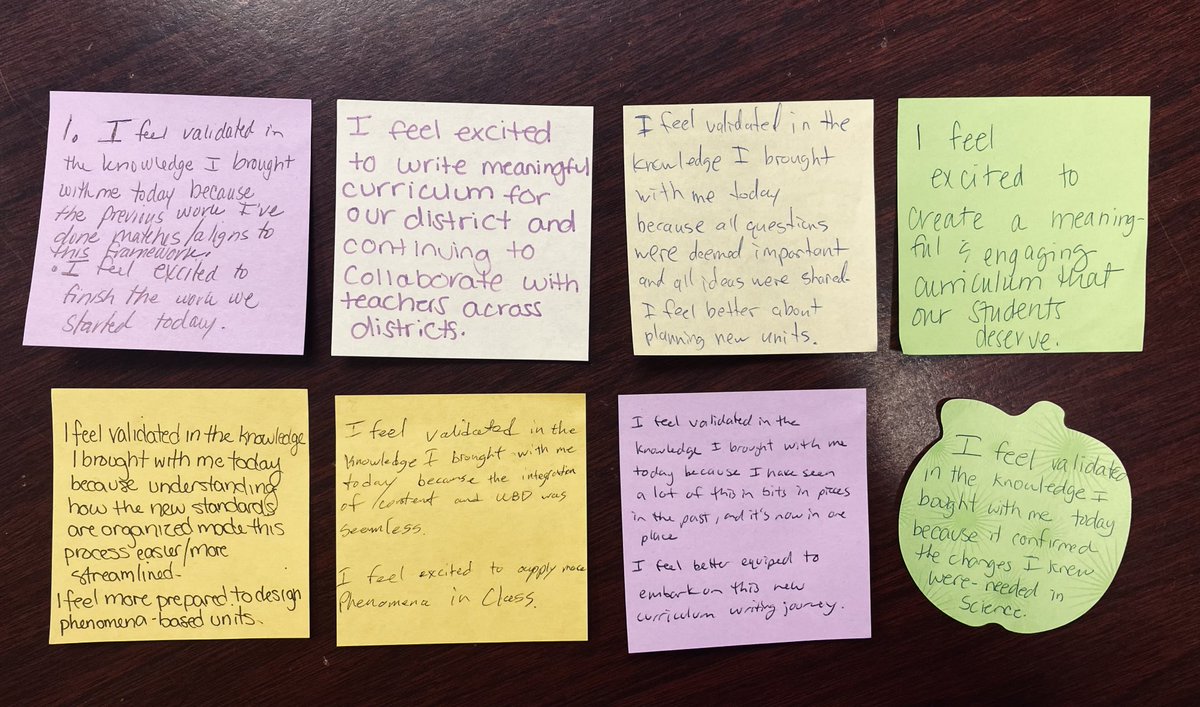 1. I feel validated in
the knowledge I brought
with me today because
the previous work I've
done matches/aligns to
this framework.
. I feel excited to
finish the work we
started today.
I feel excited
to write meaningful
curriculum for
our district and
continuing to
collaborate with
teachers across
districts.
I feel validated in the
knowledge I brought
with me today
because all questions
were deemed important
and all ideas were shared.
I feel better about
planning new units.
I feel
excited to
create a meaning-
ful & engaging
curriculum that
our students
deserve.
I feel validated in the knowledge
I brought with me today
because understanding
how the new standards
are organized made this
process easier/more
streamlined.
I feel more prepared to design
phenomena-based units.
I feel validated in the
knowledge I brought with me
today because the integration
of /content and UBD was
seemless.
I feel excited to apply more
Phenomena in Class.
I feel validated in the
knowledge I brought with me
today because I have seen
a lot of this in bits in pieces
in the past, and it's now in one
place
I feel better equiped to
embark on this new
curriculum writing journey.
I feel validated
in the knowledge I
bought with me today
because it confirmed
the changes I knew
were needed in
Science.